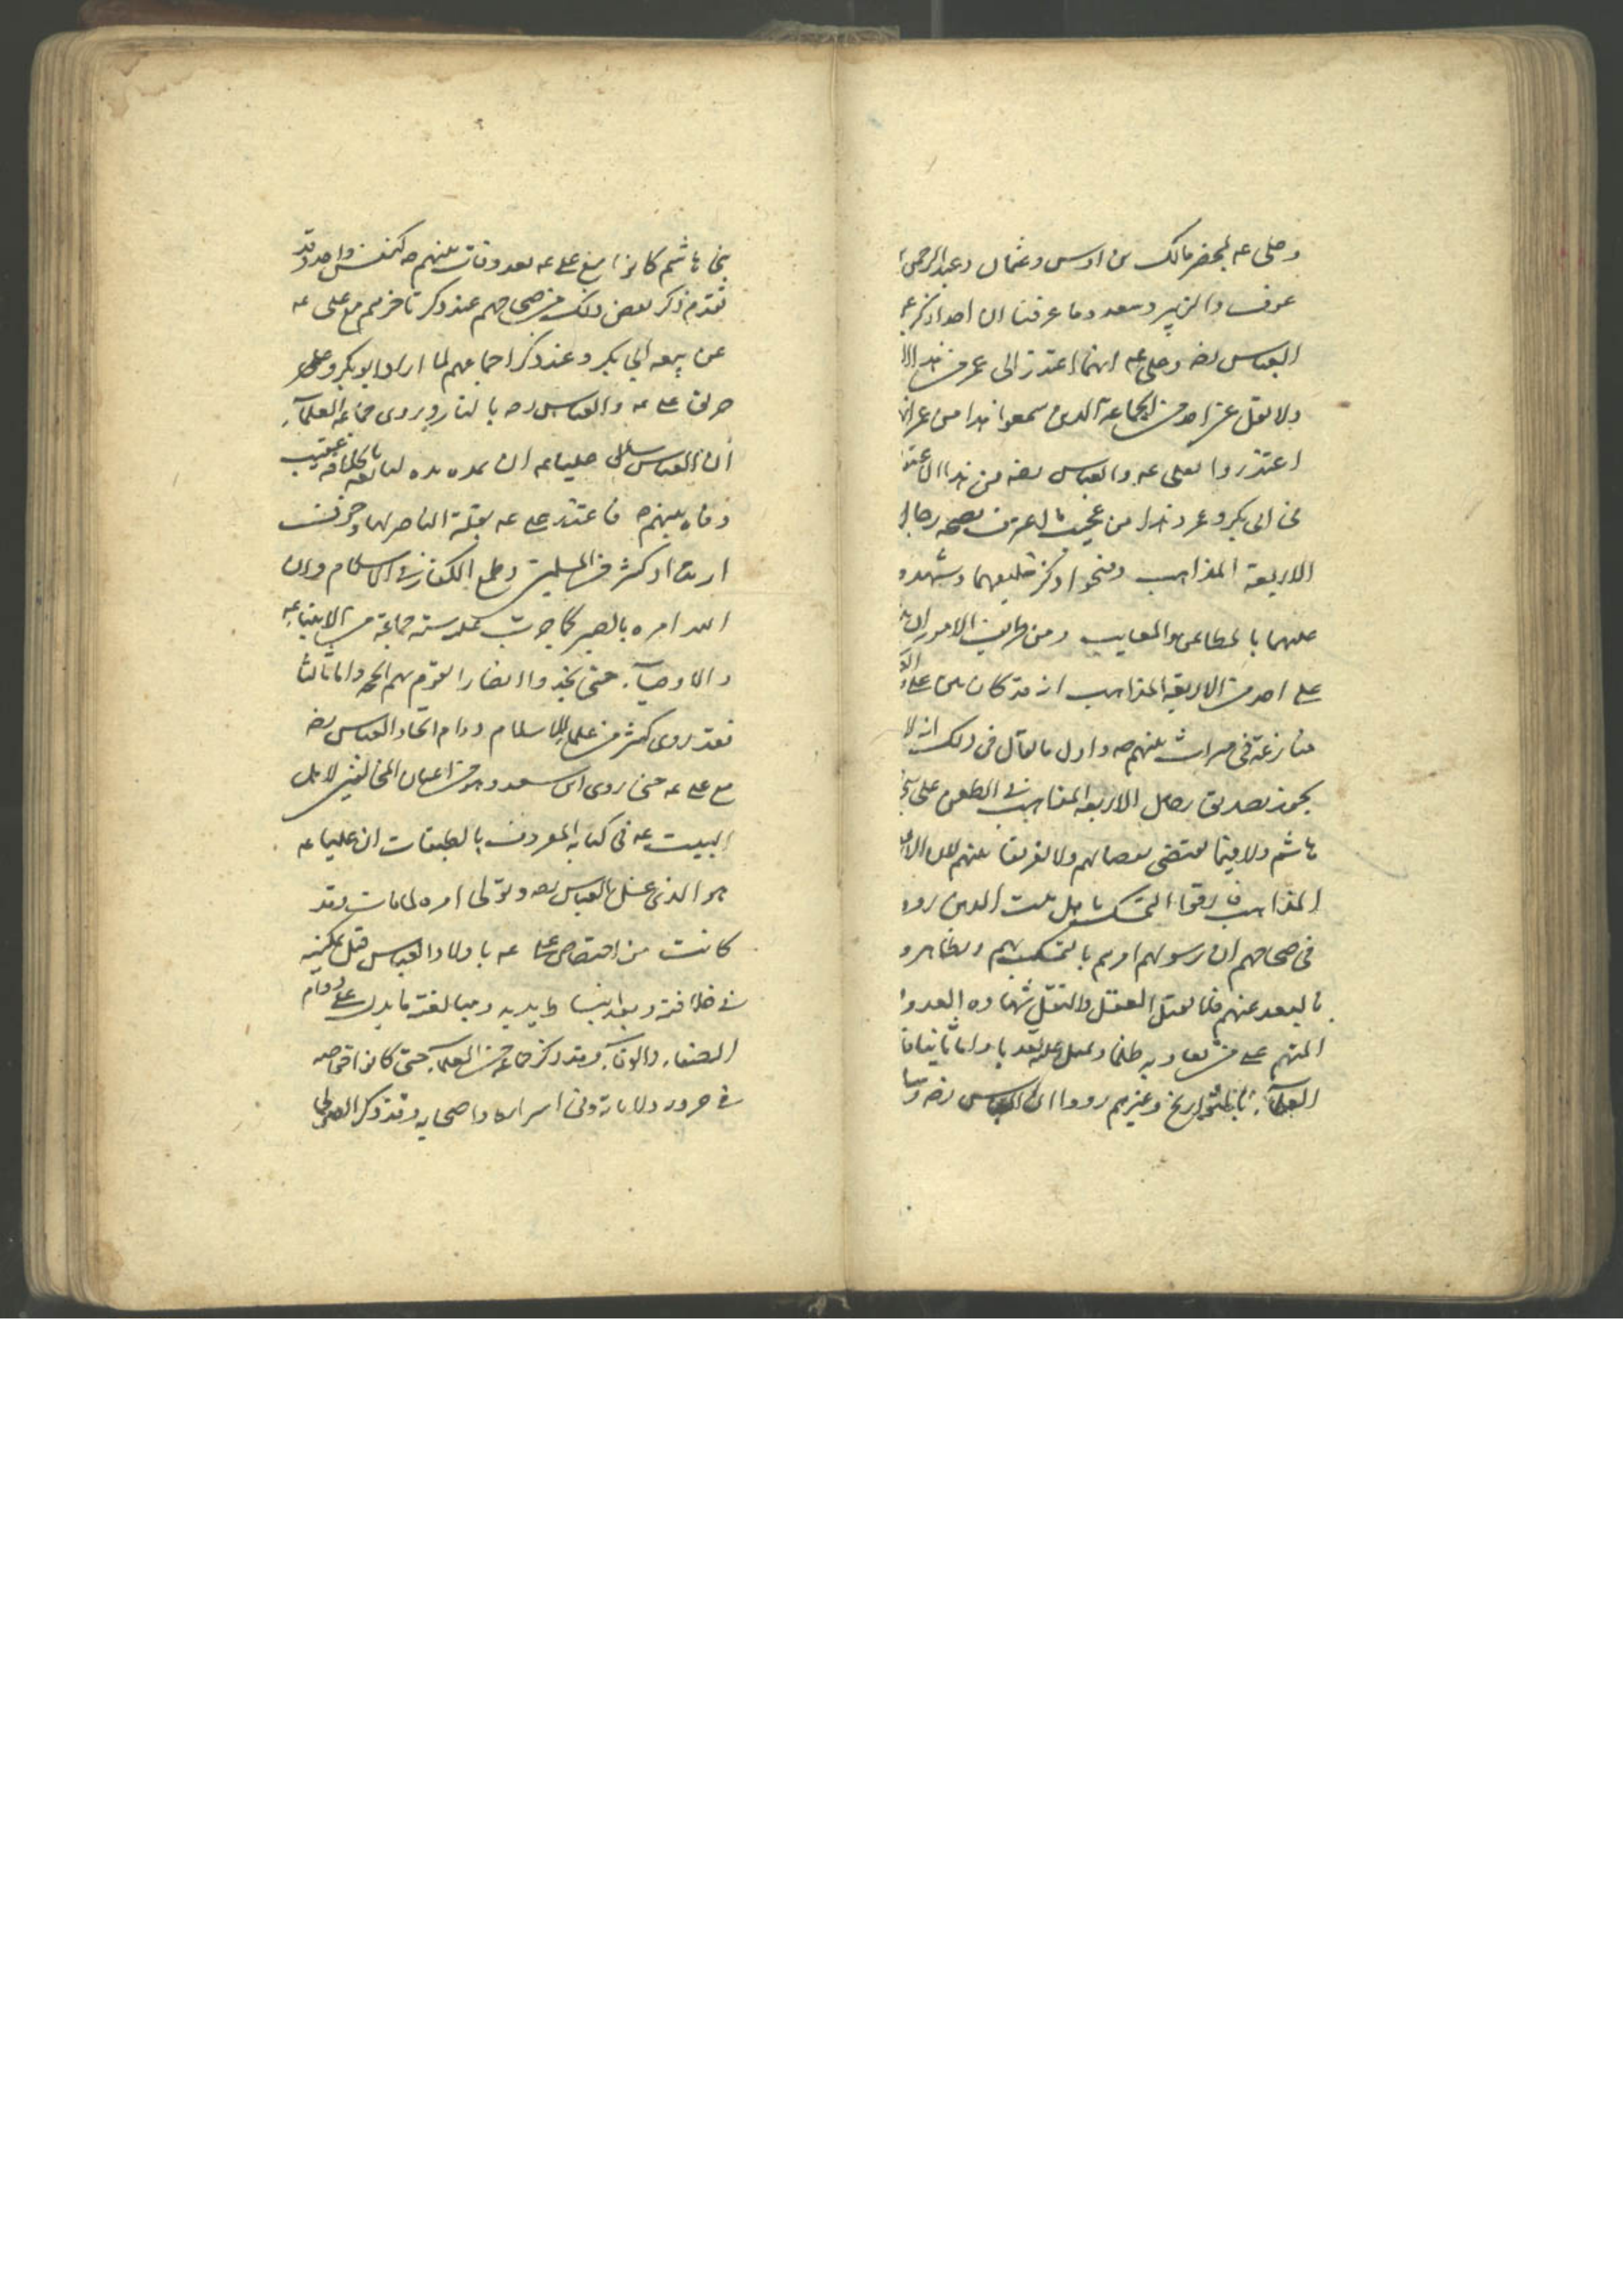 وعلى عه بمحضر مالك بن اوس وعثمان وعبد الرحمن
عوف والزبير وسعد وما عرفنا ان احدا ذكر
العباس رضه وعلى عه انهما اعتذر الى عمر من هذا
ولا نقل عن احد من الجماعة الذين سمعوا هذا من عمر
اعتذروا لعلى عه والعباس رضه من هذا
فى ابى بكر وعمر وهذا من عجيب ما اعترف بصحه رجال
الاربعة المذاهب وقبحوا ذكر خليفيهما وشهدوا
عليهما بالمطاعن والمعايب ومن طريف الامور
على احد من الاربعة المذاهب انه قد كان بين على و
منازعة فى ميراث نبيهم صه واول ما يقال فى ذلك انه لا
يجوز تصديق رجال الاربعه المذاهب فى الطعن على بنى
هاشم ولا فيما يقتضى نقصا لهم ولا تفريقا بينهم لان
المذاهب فارقوا التمسك باهل بيت الذين رووا
فى صحاحهم ان رسولهم امرهم بالتمسك بهم وتظاهروا
بالبعد عنهم فلا يقبل العقل والنقل شهاده العدو
المتهم على من يعاديه ظلما ويميل عليه تعديا واما ثانيا فان
العلماء بالتواريخ وغيرهم رووا ان العباس رضه و
بنى هاشم كانوا مع على عه بعد وفات نبيهم صه كنفس واحد وقد
تقدم ذكر بعض ذلك من صحاحهم عند ذكر تاخرهم مع على عه
عن بيعه ابى بكر وعند ذكر اجماعهم لما اراد ابو بكر وعمر
حرق على عه والعباس رضه بالنار ويروى جماعة العلماء
ان العباس سئل عليا عه ان يمد يده ليبايعه بالخلافه عقيب
وفاه نبيهم صه فاعتذر على عه بقلة الناصر لهما وخوف
ارتداد كثير من المسلمين وطمع الكفار فى الاسلام وان
الله امره بالصبر كما جرت عليه سنه جماعة من الانبياء عه
والاوصياء حتى يجدوا انصارا تقوم بهم الحجه واما ثالثا
فقد روى كثير من علماء الاسلام دوام اتحاد العباس رضه
مع على عه حتى روى ابن سعد وهو من اعيان المخالفين لاهل
البيت عه فى كتابه المعروف بالطبقات ان عليا عه
هو الذى غسل العباس رضه وتولى امره لما مات وقد
كانت من اختصاص على عه باولاد العباس قبل تمكينه
فى خلافته وبعد انبساط يديه ومبالغته ما يدل على دوام
الصفاء والوفاء وقد ذكر جماعه من العلماء حتى كانوا خواصه
فى حروبه وولاياته وفى اسراره واصحابه وقد ذكر